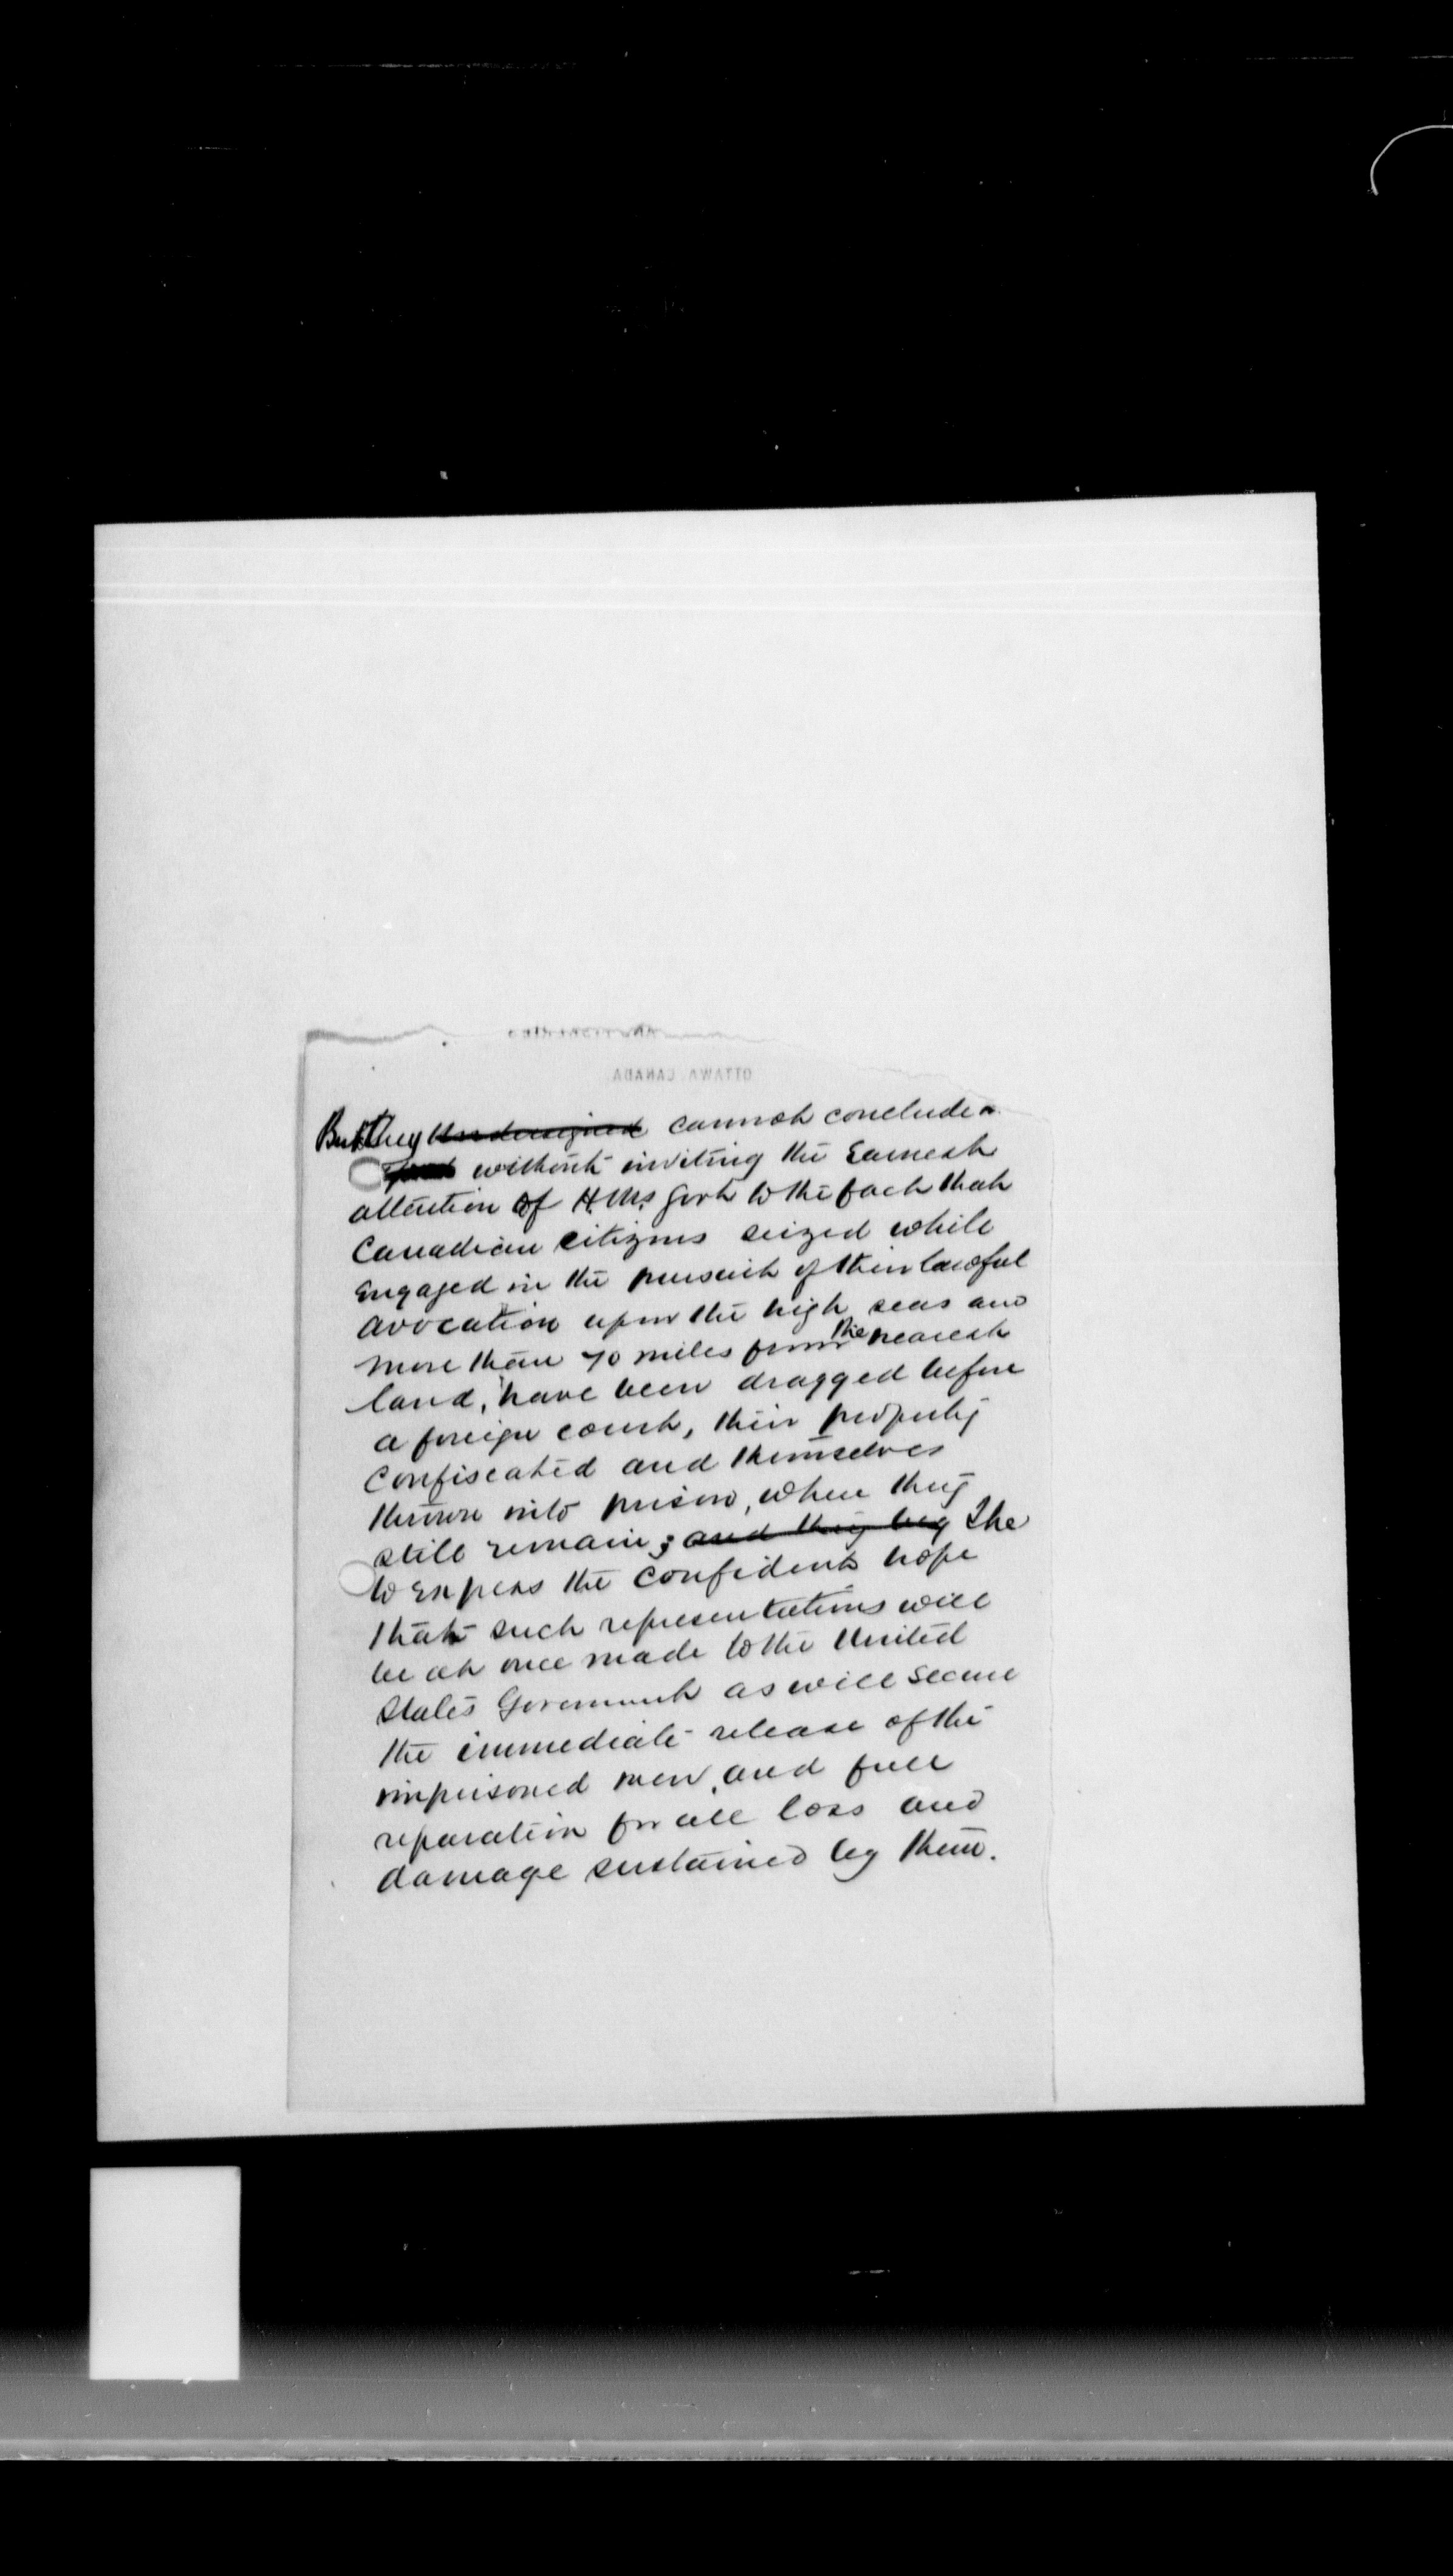 OTTAWA CANADA
But they undersigned cannot conclude
without inviting the earnest
attention of H.M's Govt to the fact that
Canadian citizens seized while
engaged in the pursuit of their lawful
avocation upon the high seas and
more than 70 miles from the nearest
land, have been dragged before
a foreign court, their property
confiscated and themselves
thrown into prison, where they
still remain; and they beg The
to express the confident hope
that such representations will
be at once made to the United
States Government as will secure
the immediate release of the
imprisoned men, and full
reparation for all loss and
damage sustained by them.